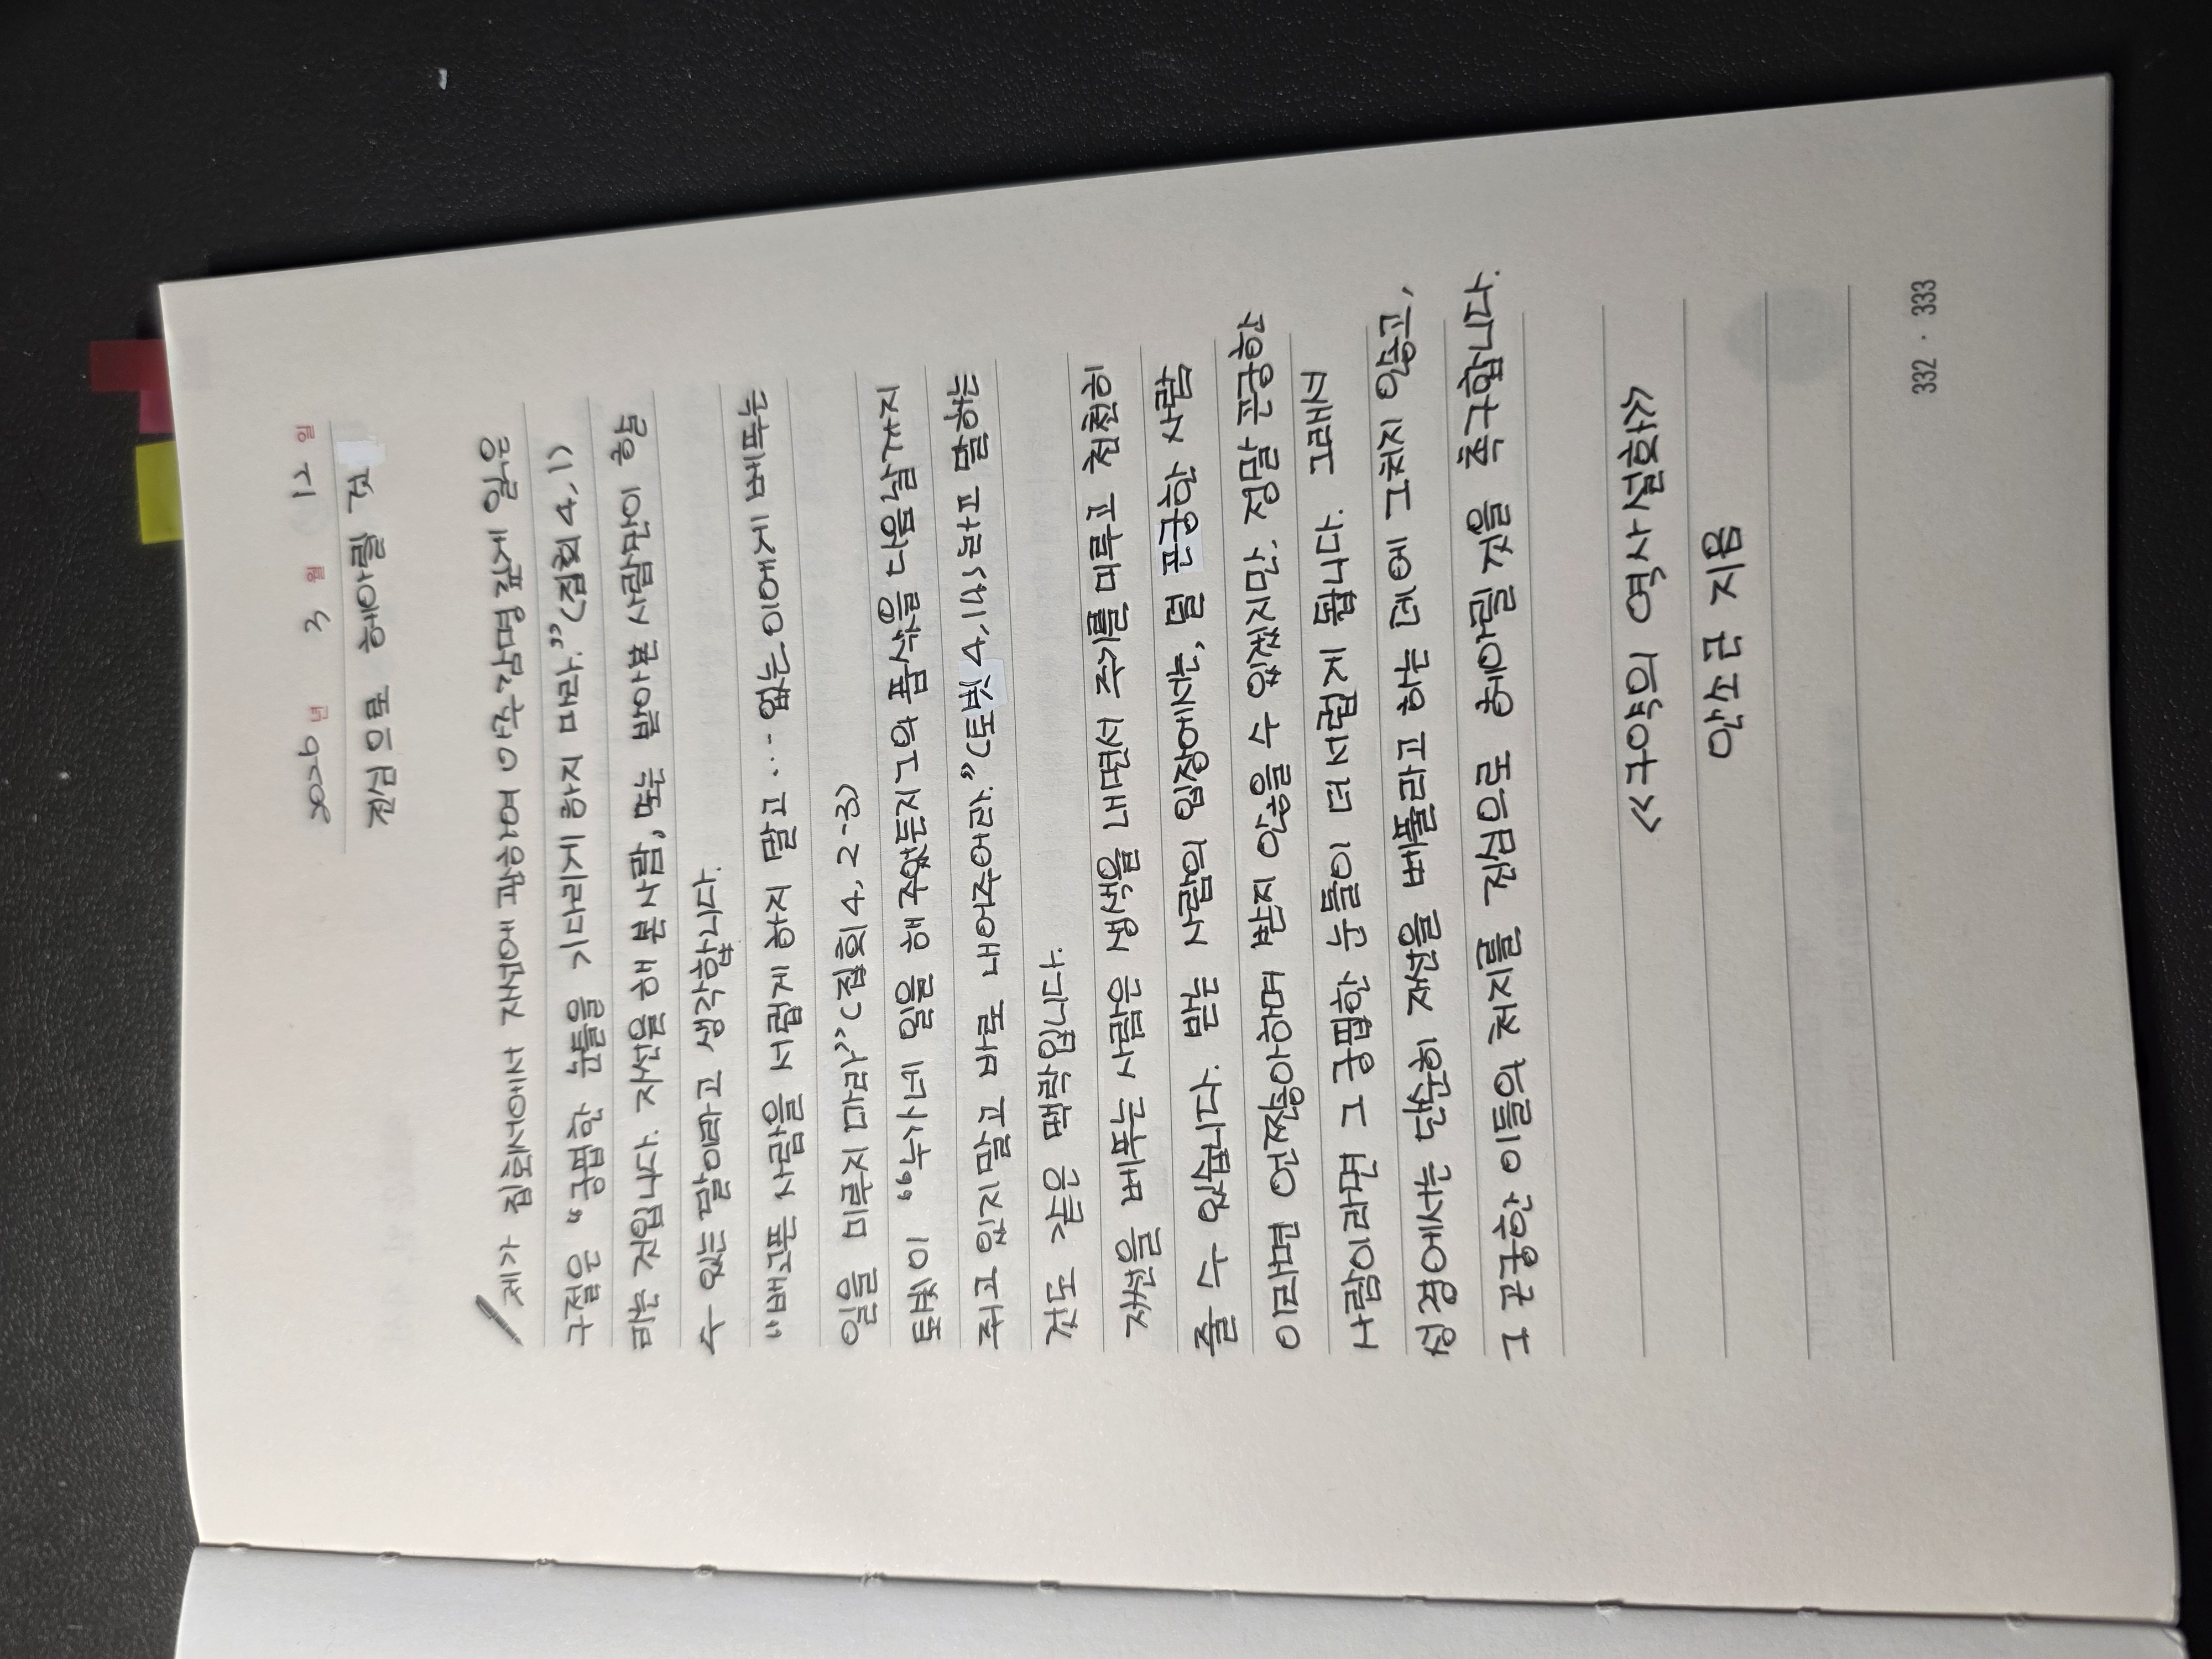 2026년 3월 12일
진심으로 헤아릴 것
제가 집회서에서 자선에 관하여 아주 감명 깊게 읽은
구절은 "궁핍한 눈들을 기다리게 하지 마라."(집회 4,1)
라는 것입니다. 자선을 해 본 사람, 또는 받아본 사람만이 할
수 있는 말이라고 생각합니다.
"배고픈 사람을 서럽게 하지 말고 ... 없는 이에게 베푸는
일을 미루지 마라"(집회 4, 2-3)
토빗이 "누가 네 일을 해 주었든지 그의 품삯을 다음날까지
쥐고 있지 말고 바로 내어주어라."(토빗 4,14)라고 말하는
것도 같은 맥락입니다.
자선을 베푸는 사람은 생색을 내면서 주기를 미루고 천천히
줄 수 있습니다. 받는 사람의 입장에서는, 덜 곤궁한 사람
이라면 언짢아하며 받지 않을 수 있겠지만, 정말 곤궁한
사람이라면 그 궁핍한 눈들이 더 서럽게 됩니다. 그래서
성경에서는 단순히 자선을 베풀라고 하는 데에 그치지 않고,
그 곤궁한 이들의 처지를 진심으로 헤아릴 것을 촉구합니다.
《구약의 역사 설화》
안소근 지음
332 · 333